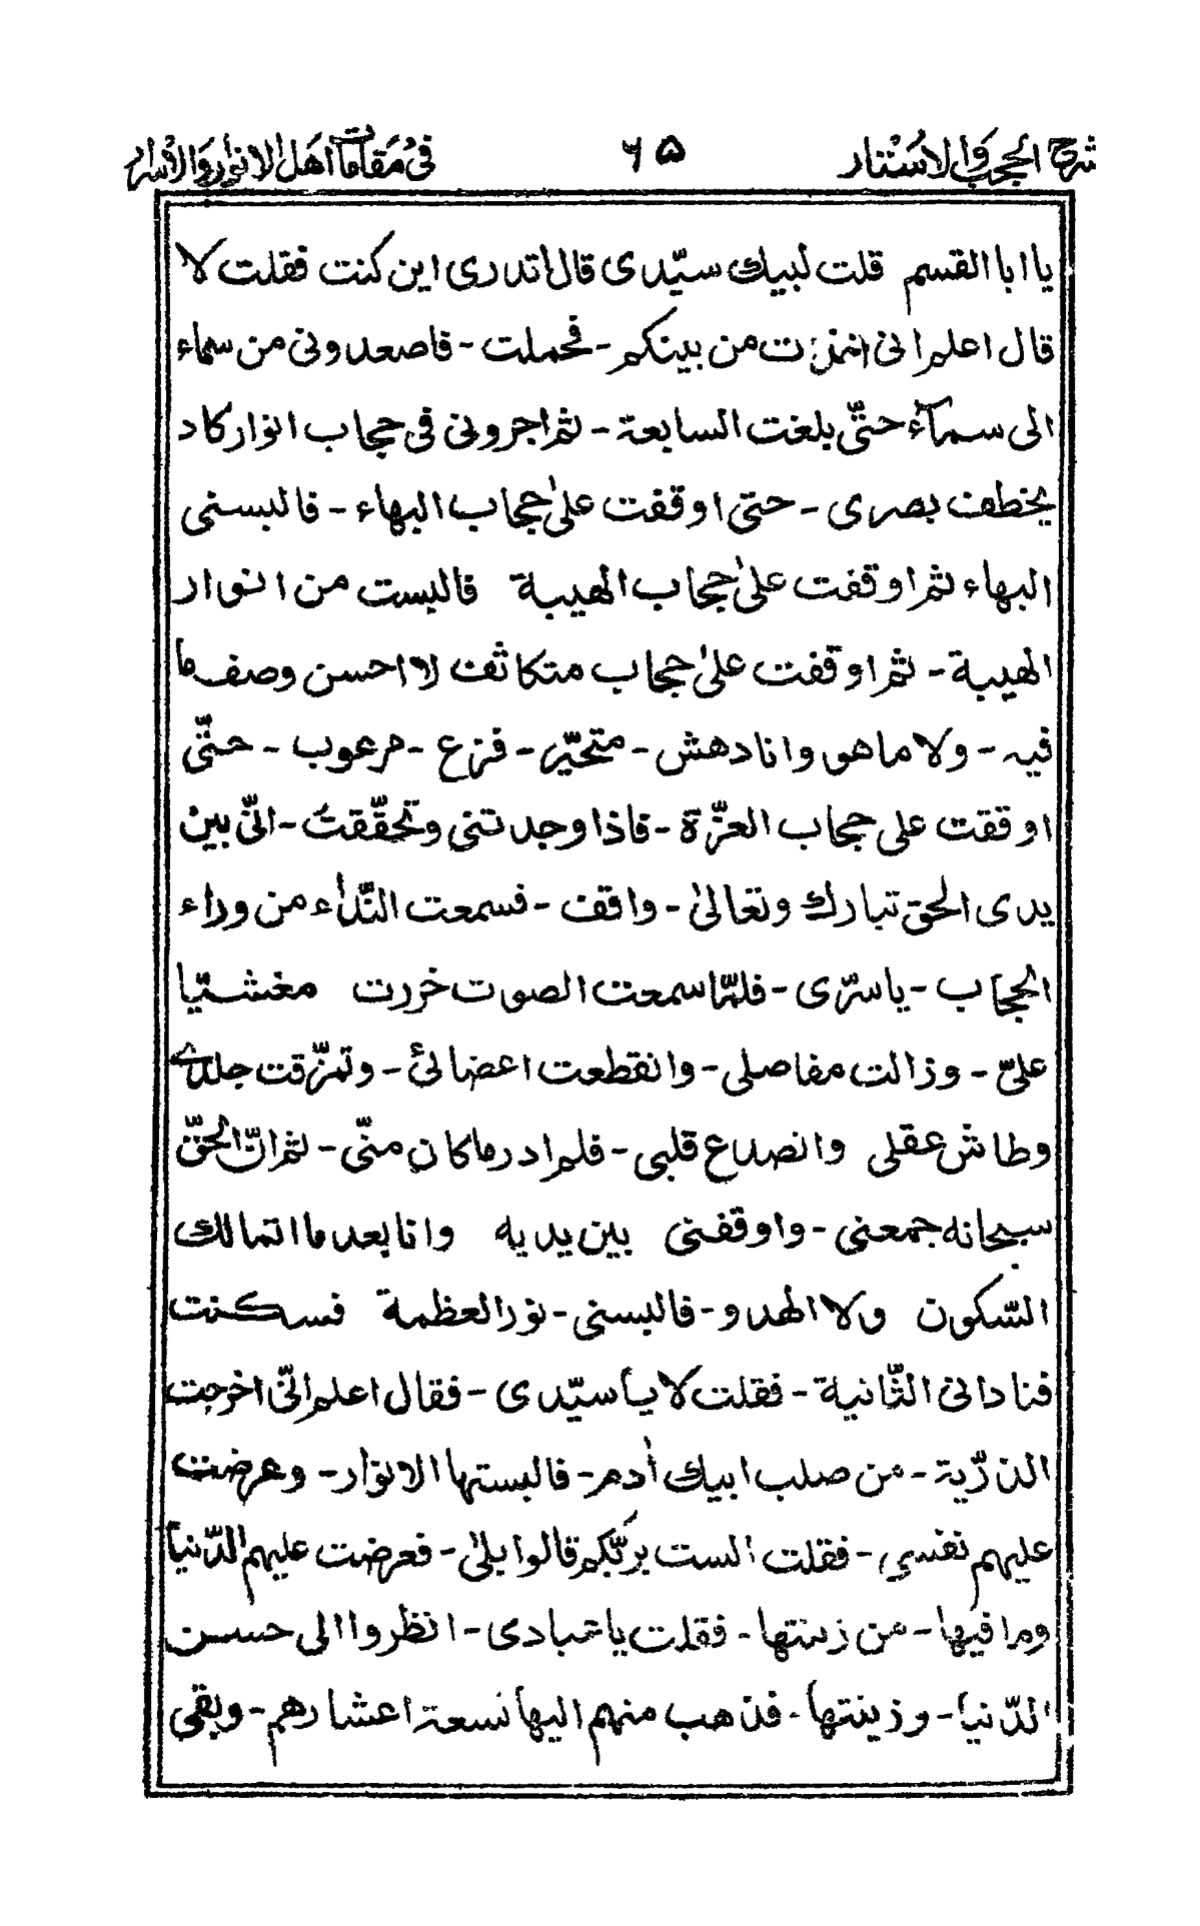 شرح الحجب والاستتار ٦٥ فى مقامات اهل الانوار والاسرار
يا ابا القسم قلت لبيك سيّدى قال اتدرى اين كنت فقلت لا
قال اعلم انى من بينكم - فحملت - فاصعدونى من سماء
الى سمآء حتّى بلغت السابعة - ثم اجرونى فى حجاب انوار كاد
يخطف بصرى - حتى اوقفت علىٰ حجاب البهاء - فالبسنى
البهاء ثم اوقفت علىٰ حجاب الهيبة فالبست من انوار
الهيبة - ثم اوقفت علىٰ حجاب متكاثف لا احسن وصف ما
فيه - ولا ما هو وانا دهش - متحيّر - فزع - مرعوب - حتّى
اوقفت على حجاب العزّة - فاذا وجدتنى وتحقّقت - انّى بين
يدى الحق تبارك وتعالىٰ - واقف - فسمعت النّداء من وراء
الحجاب - يا سرّى - فلمّا سمعت الصوت خررت مغشيّا
علىّ - وزالت مفاصلى - وانقطعت اعضائى - وتمزّقت جلدے
وطاش عقلى وانصداع قلبى - فلم ادر ما كان منّى - ثم انّ الحقّ
سبحانه جمعنى - واوقفنى بين يديه وانا بعد ما اتمالك
السّكون ولا الهدو - فالبسنى - نور العظمة فسكنت
فنادانى الثّانية - فقلت لا يا سيّدى - فقال اعلم انّى اخرجت
الذرّية - من صلب ابيك اٰدم - فالبستها الانوار - وعرضت
عليهم نفسى - فقلت الست بربّكم قالوا بلىٰ - فعرضت عليهم الدّنيا
وما فيها - من زينتها - فقلت يا عبادى - انظروا الى حسن
الدّنيا - وزينتها - فذهب منهم اليها تسعة اعشارهم - وبقى